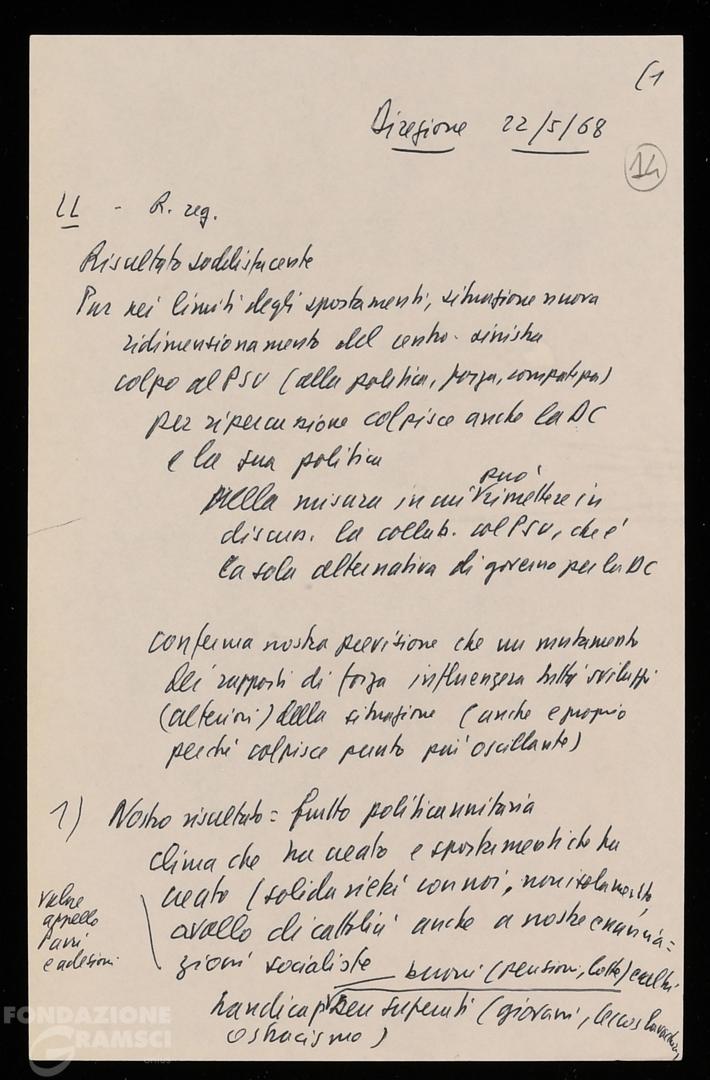 (1
Direzione 22/5/68
14
LL - R. reg.
Risultato soddisfacente
Pur nei limiti degli spostamenti, situazione nuova
ridimensionamento del centro-sinistra
colpo al PSU (alla politica, forza, compattezza)
per ripercussione colpisce anche la DC
e la sua politica
nella misura in cui può rimettere in
discuss. la collab. col PSU, che è
la sola alternativa di governo per la DC
conferma nostra previsione che un mutamento
dei rapporti di forza influenzerà tutti sviluppi
(ulteriori) della situazione (anche e proprio
perché colpisce punto più oscillante)
1) Nostro risultato = frutto politica unitaria
clima che ha creato e spostamenti che ha
creato (solidarietà con noi, non isolamento,
avallo di cattolici anche a nostre
valore
appello
Parri
e adesioni
zioni socialiste buoni (pensioni, lotte) e altri
handicap ben superati (giovani,
ostracismo)
FONDAZIONE
GRAMSCI
ONLUS